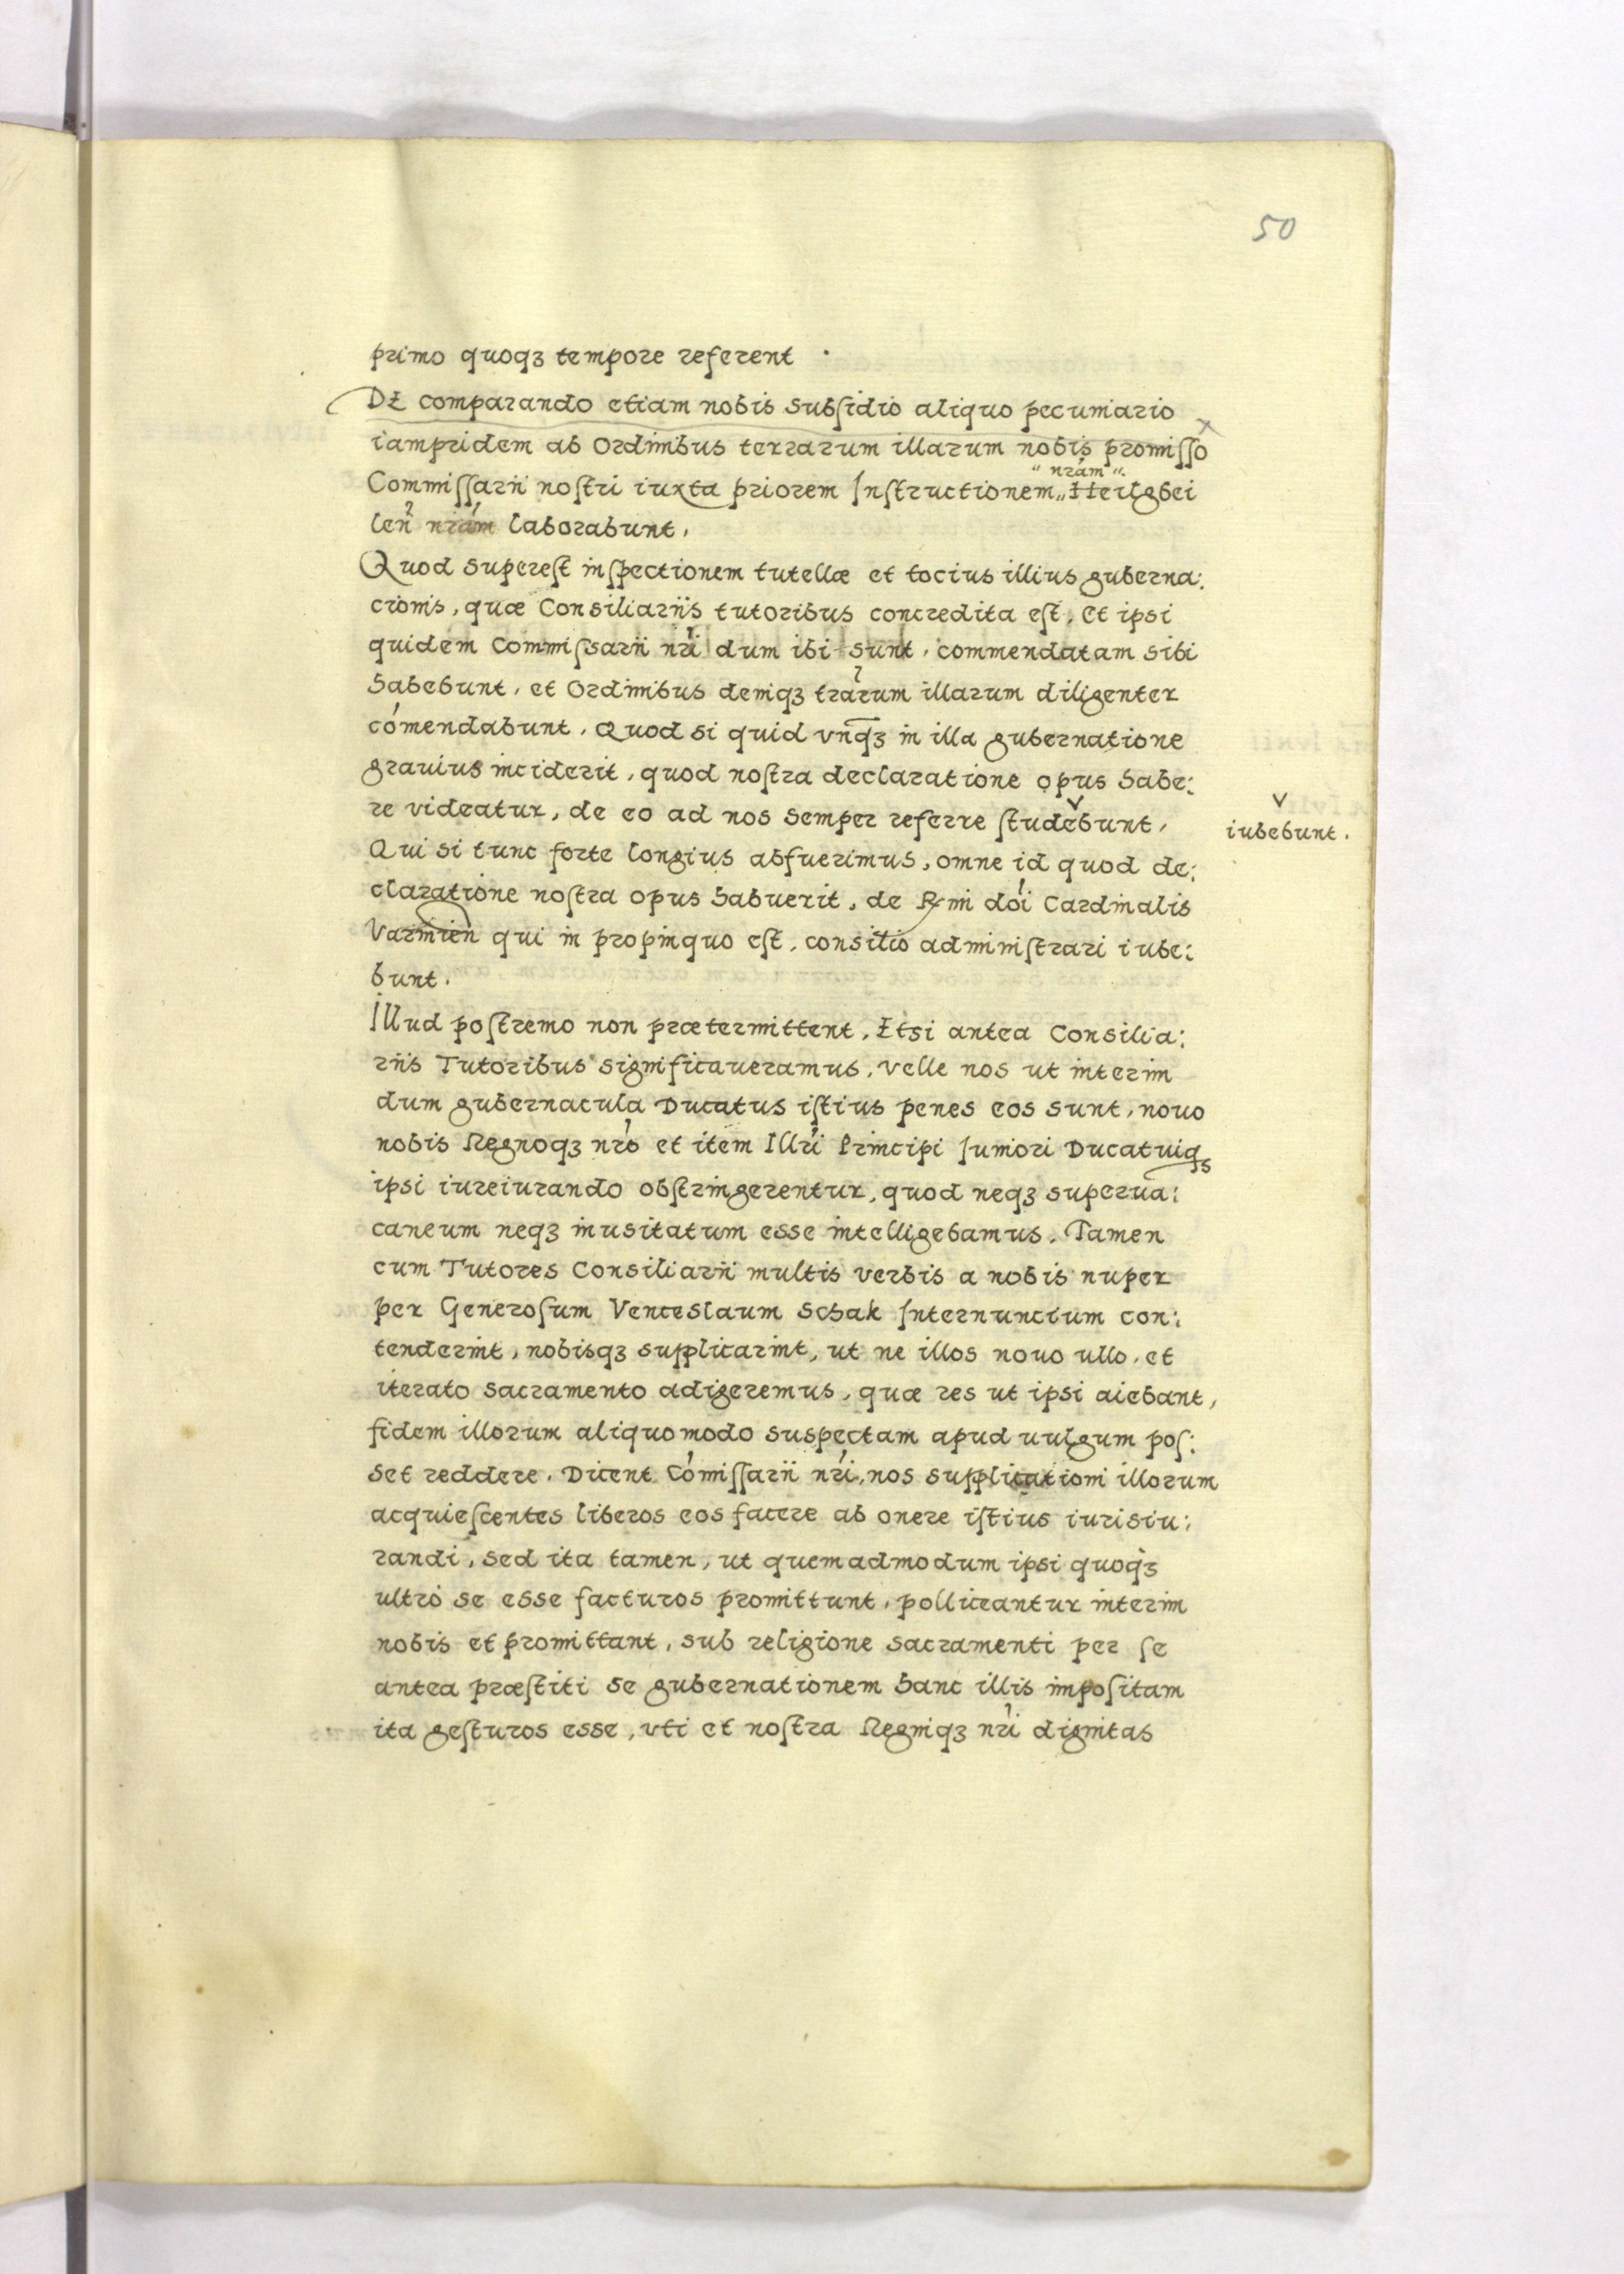 50
primo quoqꝫ tempore referent
DE comparando etiam nobis subſidio aliquo pecuniario
iampridem ab Ordinibus terrarum illarum nobis promiſſo
"nrám".
Commiſſarii noſtri iuxta priorem Inſtructionem„ Heilgbei
len̄ nrám laborabunt,
Quod supereſt inſpectionem tutellæ et tocius illius guberna:
cionis, quæ Consiliariis tutoribus concredita eſt, Et ipsi
quidem Commiſsarii nri dum ibi sunt, commendatam sibi
habebunt, et Ordinibus deniqꝫ trarum illarum diligenter
cómendabunt. Quod si quid vnq̄ꝫ in illa gubernatione
grauius inciderit, quod noſtra declaratione opus habe:
re videatur, de eo ad nos semper referre ſtudebunt,
v
iubebunt.
Qui si tunc forte longius abfuerimus, omne id quod de:
claratione noſtra opus habuerit, de Rmi doi Cardinalis
Varmien qui in propinquo eſt, consilio adminiſtrari iube:
bunt.
Illud poſtremo non prætermittent, Etsi antea Consilia:
riis Tutoribus significaueramus, velle nos ut interim
dum gubernacula Ducatus iſtius penes eos sunt, nouo
nobis Regnoqꝫ nró et item Illri Principi Iuniori Ducatuiqꝫ
ipsi iureiurando obſtringerentur, quod neqꝫ superua:
caneum neqꝫ inusitatum esse intelligebamus. Tamen
cum Tutores Consiliarii multis verbis a nobis nuper
per Generoſum Venceslaum Schak Internuncium con:
tenderint, nobisqꝫ supplicarint, ut ne illos nouo ullo, et
iterato sacramento adigeremus, quæ res ut ipsi aiebant,
fidem illorum aliquomodo suspectam apud uulgum poſ:
set reddere. Dicent Cómiſſarii nri, nos supplicationi illorum
acquieſcentes liberos eos facere ab onere iſtius iurisiu:
randi, sed ita tamen, ut quemadmodum ipsi quoqꝫ
ultro se esse facturos promittunt, polliceantur interim
nobis et promittant, sub religione sacramenti per ſe
antea præſtiti se gubernationem hanc illis impoſitam
ita geſturos esse, vti et noſtra Regniqꝫ nri dignitas